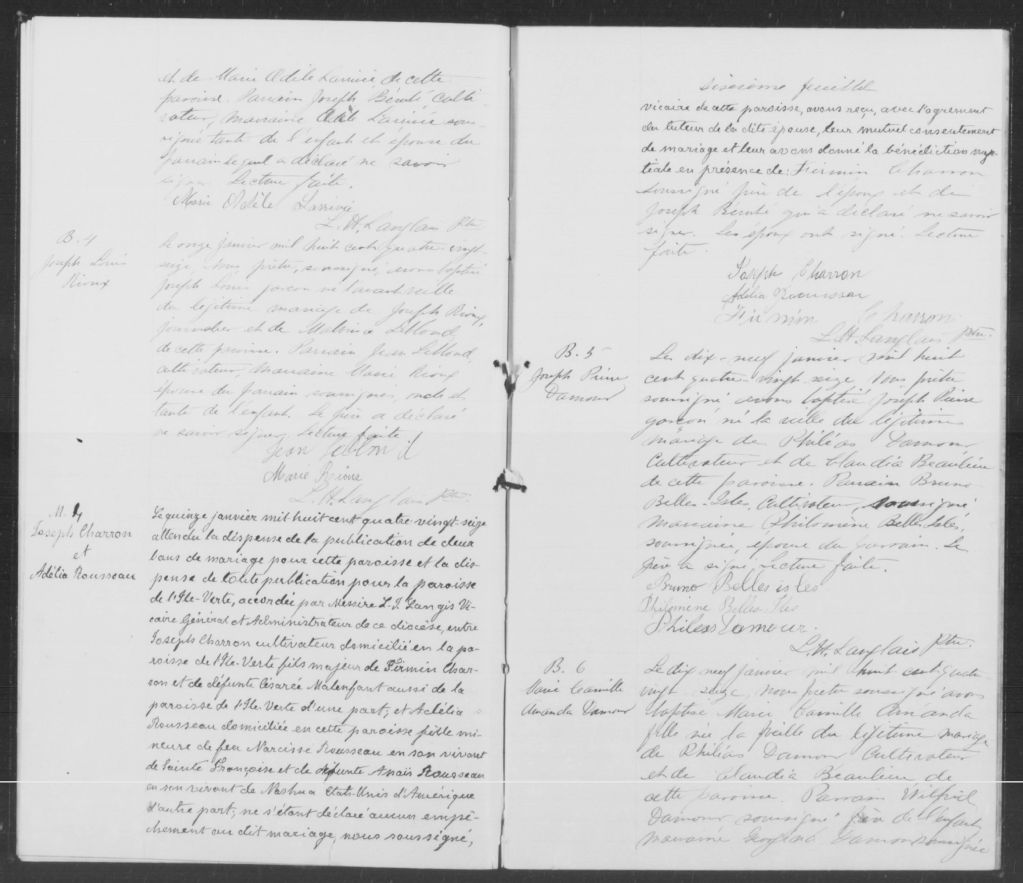 et de Marie Adèle Larrivée de cette
paroisse. Parrain Joseph Bérubé culti-
vateur, marraine Adèle Larrivée sous-
signée tante de l'enfant et épouse du
parrain lequel a déclaré ne savoir
signer. Lecture faite.
Marie Adèle Larrivée
L. H. Langlais Ptre
B. 4
Joseph Louis
Rioux
Le onze janvier mil huit cent quatre vingt-
seize, Nous prêtre, soussigné, avons baptisé
Joseph Louis garçon né l'avant veille
du légitime mariage de Joseph Rioux,
journalier et de
de cette paroisse. Parrain Jean
cultivateur, marraine Marie Rioux
épouse du parrain, soussignés, oncle et
tante de l'enfant. Le père a déclaré
ne savoir signer. Lecture faite
Jean
Marie Rioux
L. H. Langlais Ptre
M. 4
Joseph Charron
et
Adélia Rousseau
Le quinze janvier mil huit cent quatre vingt-seize
attendu la dispense de la publication de deux
bans de mariage pour cette paroisse et la dis-
pense de toute publication pour la paroisse
de l'Ile-Verte, accordée par Messire L. J. Langis Vi-
caire Général et Administrateur de ce diocèse, entre
Joseph Charron cultivateur domicilié en la pa-
roisse de l'Ile-Verte fils majeur de Firmin Char-
ron et de défunte Césarée Malenfant aussi de la
paroisse de l'Ile-Verte d'une part; et Adélia
Rousseau domiciliée en cette paroisse fille mi-
neure de feu Narcisse Rousseau en son vivant
de Sainte Françoise et de défunte Anaïs Rousseau
en son vivant de Nashua Etats-Unis d'Amérique
d'autre part; ne s'étant déclaré aucun empê-
chement au dit mariage, nous soussigné,
sixième feuille
vicaire de cette paroisse, avons reçu, avec l'agrément
du tuteur de la dite épouse, leur mutuel consentement
de mariage et leur avons donné la bénédiction nup-
tiale en présence de: Firmin Charron
soussigné père de l'époux et de
Joseph Bérubé qui a déclaré ne savoir
signer. Les époux ont signé. Lecture
faite.
Joseph Charron
Adélia Rousseau
Firmin Charron
L. H. Langlais Ptre.
B. 5
Joseph Pierre
Damour
Le dix-neuf janvier mil huit
cent quatre-vingt-seize Nous prêtre
soussigné avons baptisé Joseph Pierre
garçon né la veille du légitime
mariage de Philéas Damour
Cultivateur et de Claudia Beaulieu
de cette paroisse. Parrain Bruno
Belles-Isles, Cultivateur, soussigné
Marraine Philomène Belles-Isles,
soussignée, épouse du parrain. Le
père a signé. Lecture faite.
Bruno Belles isles
Philomène Belles-Iles
Phileas Damour.
L. H. Langlais Ptre.
B. 6
Marie Camille
Amanda Damour
Le dix neuf janvier mil huit cent quatre
vingt seize, Nous prêtre soussigné avons
baptisé Marie Camille Amanda
fille née la veille du légitime mariage
de Philéas Damour Cultivateur
et de Claudia Beaulieu de
cette paroisse. Parrain Wilfrid
Damour soussigné frère de l'enfant
marraine Damour soussignée